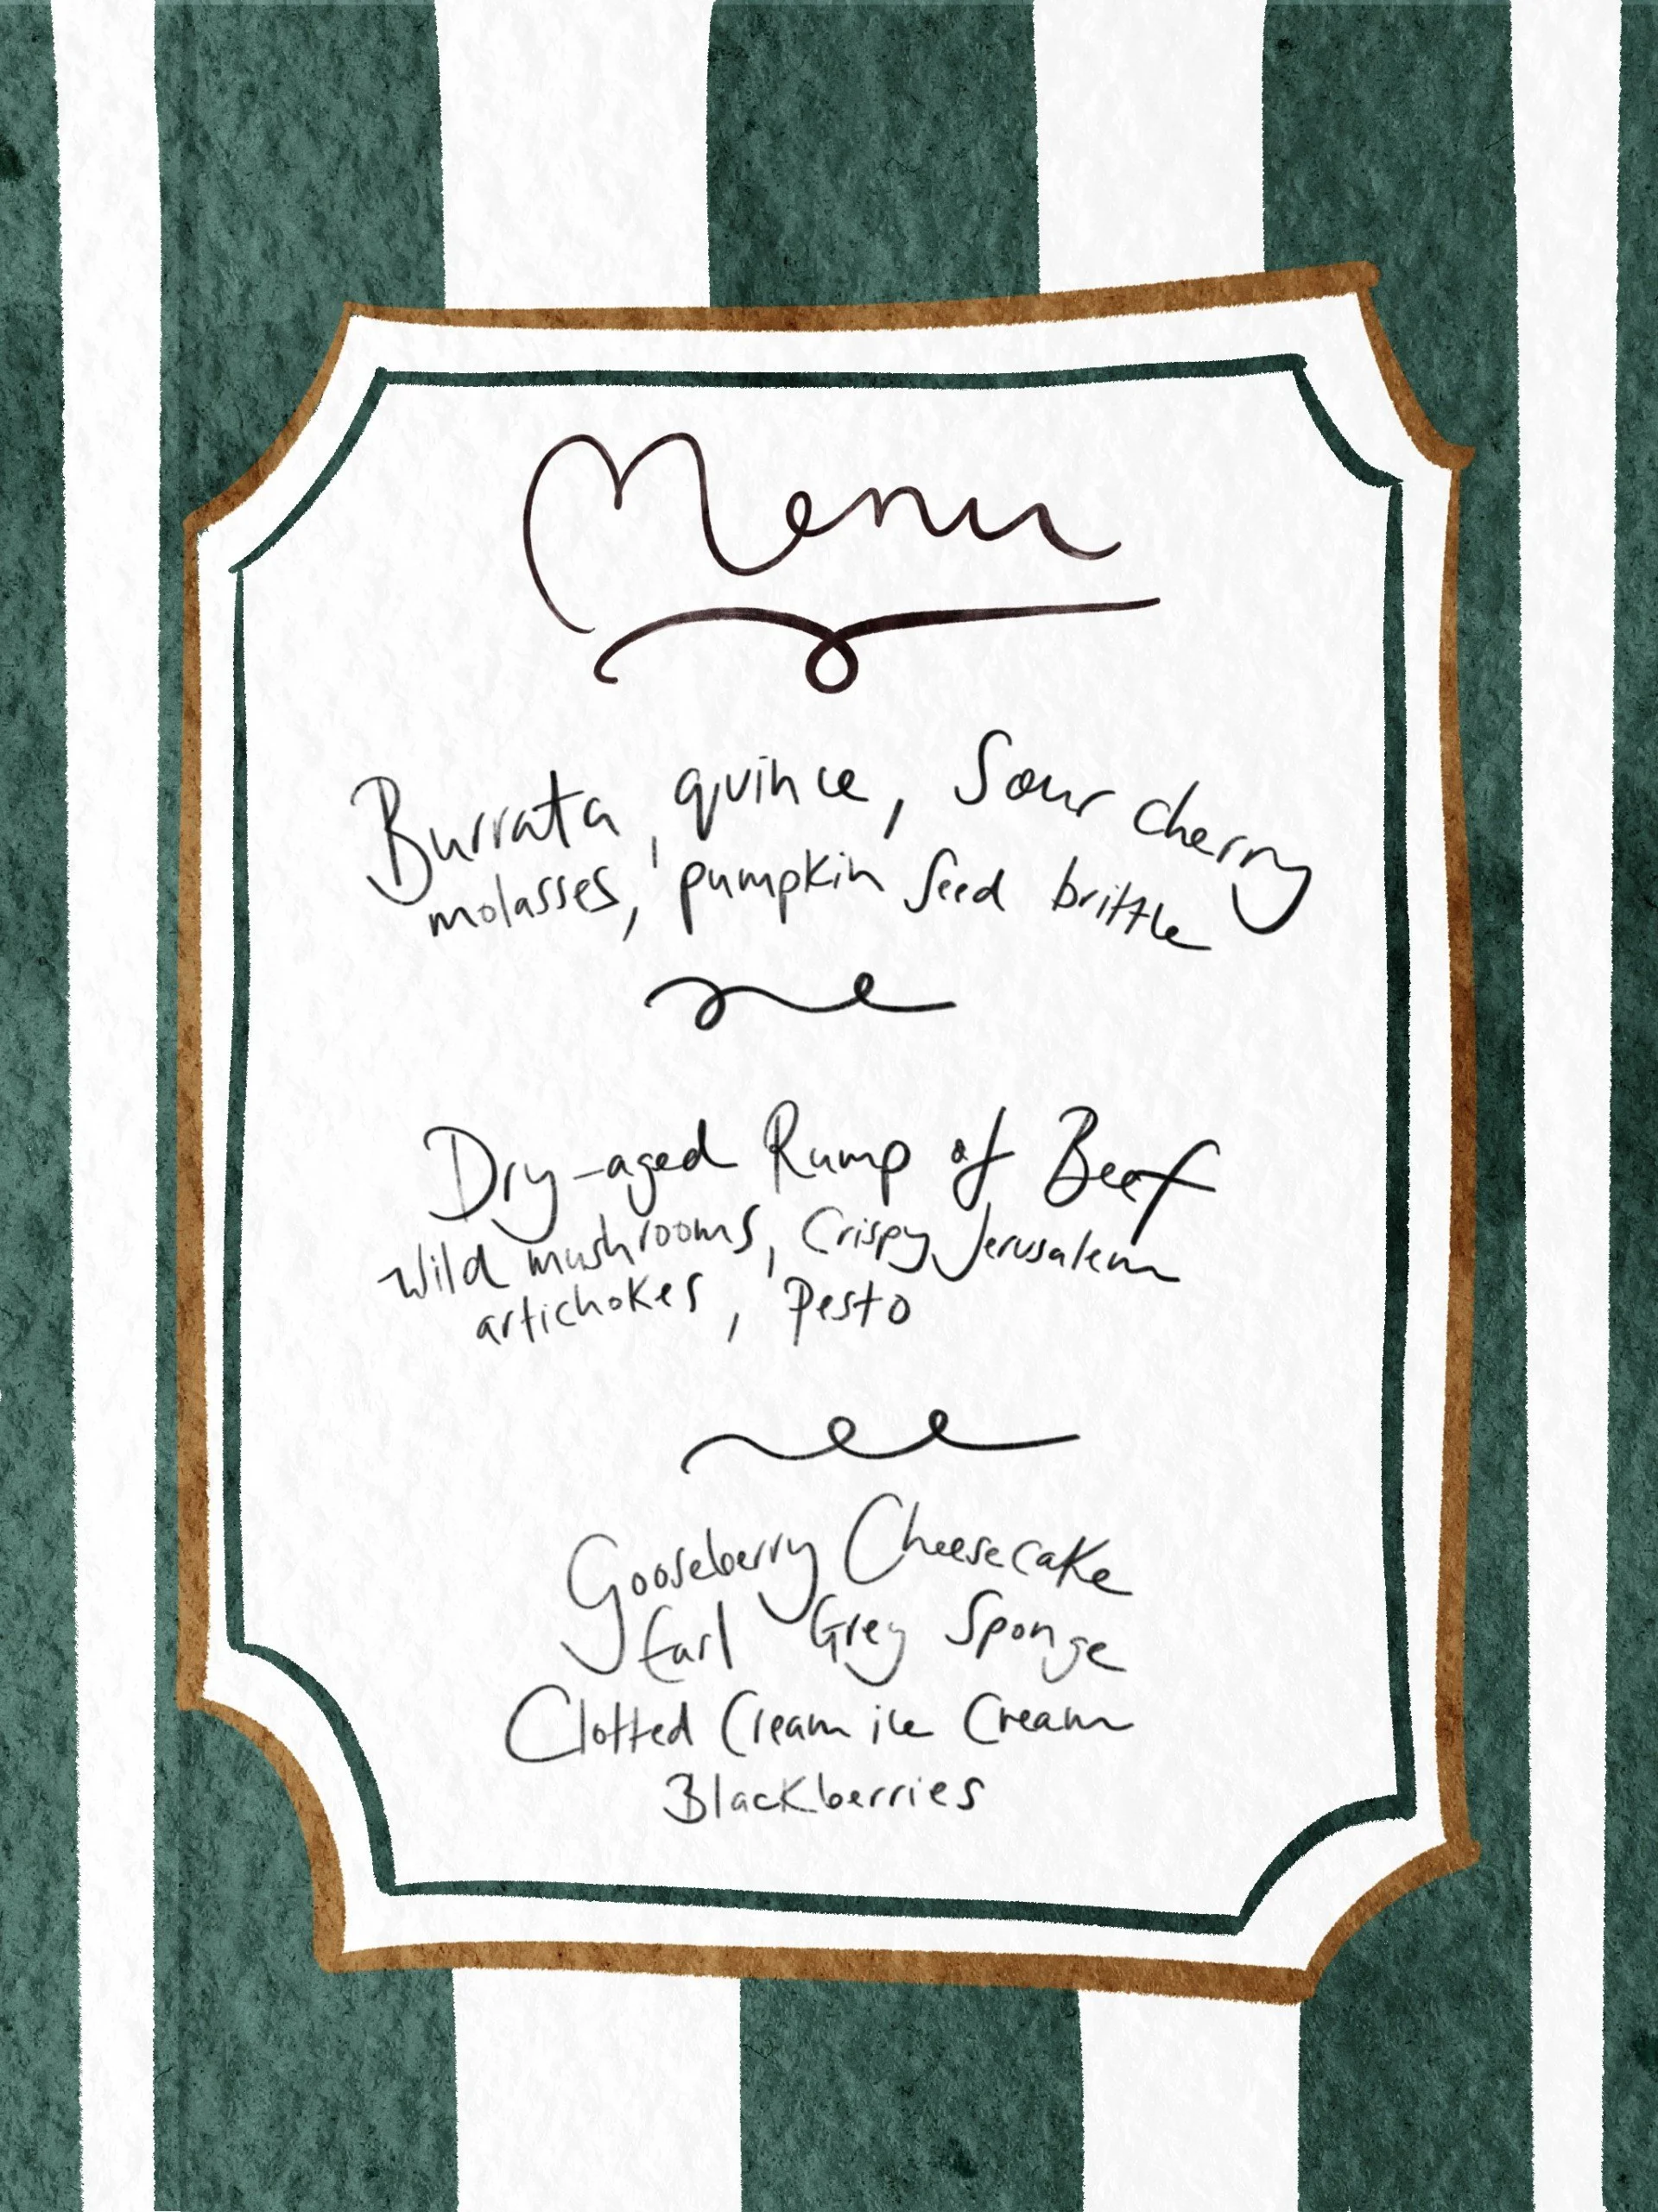 Menu
Burrata, quince, Sour cherry
molasses, pumpkin seed brittle
Dry-aged Rump of Beef
wild mushrooms, Crispy Jerusalem
artichokes, Pesto
Gooseberry Cheesecake
Earl Grey Sponge
Clotted Cream ice Cream
Blackberries